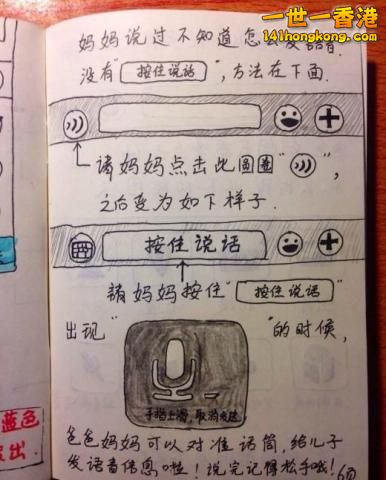 一世一香港
141hongkong.com
妈妈说过不知道怎么发语音.
没有"按住说话",方法在下面.
请妈妈点击此圆圈" ",
之后变为如下样子.
按住说话
請妈妈按住"按住说话"
出现" "的时候,
手指上滑,取消发送
爸爸妈妈可以对准话筒,给儿子
发语音信息啦!说完记得松手哦!
蓝色
出.